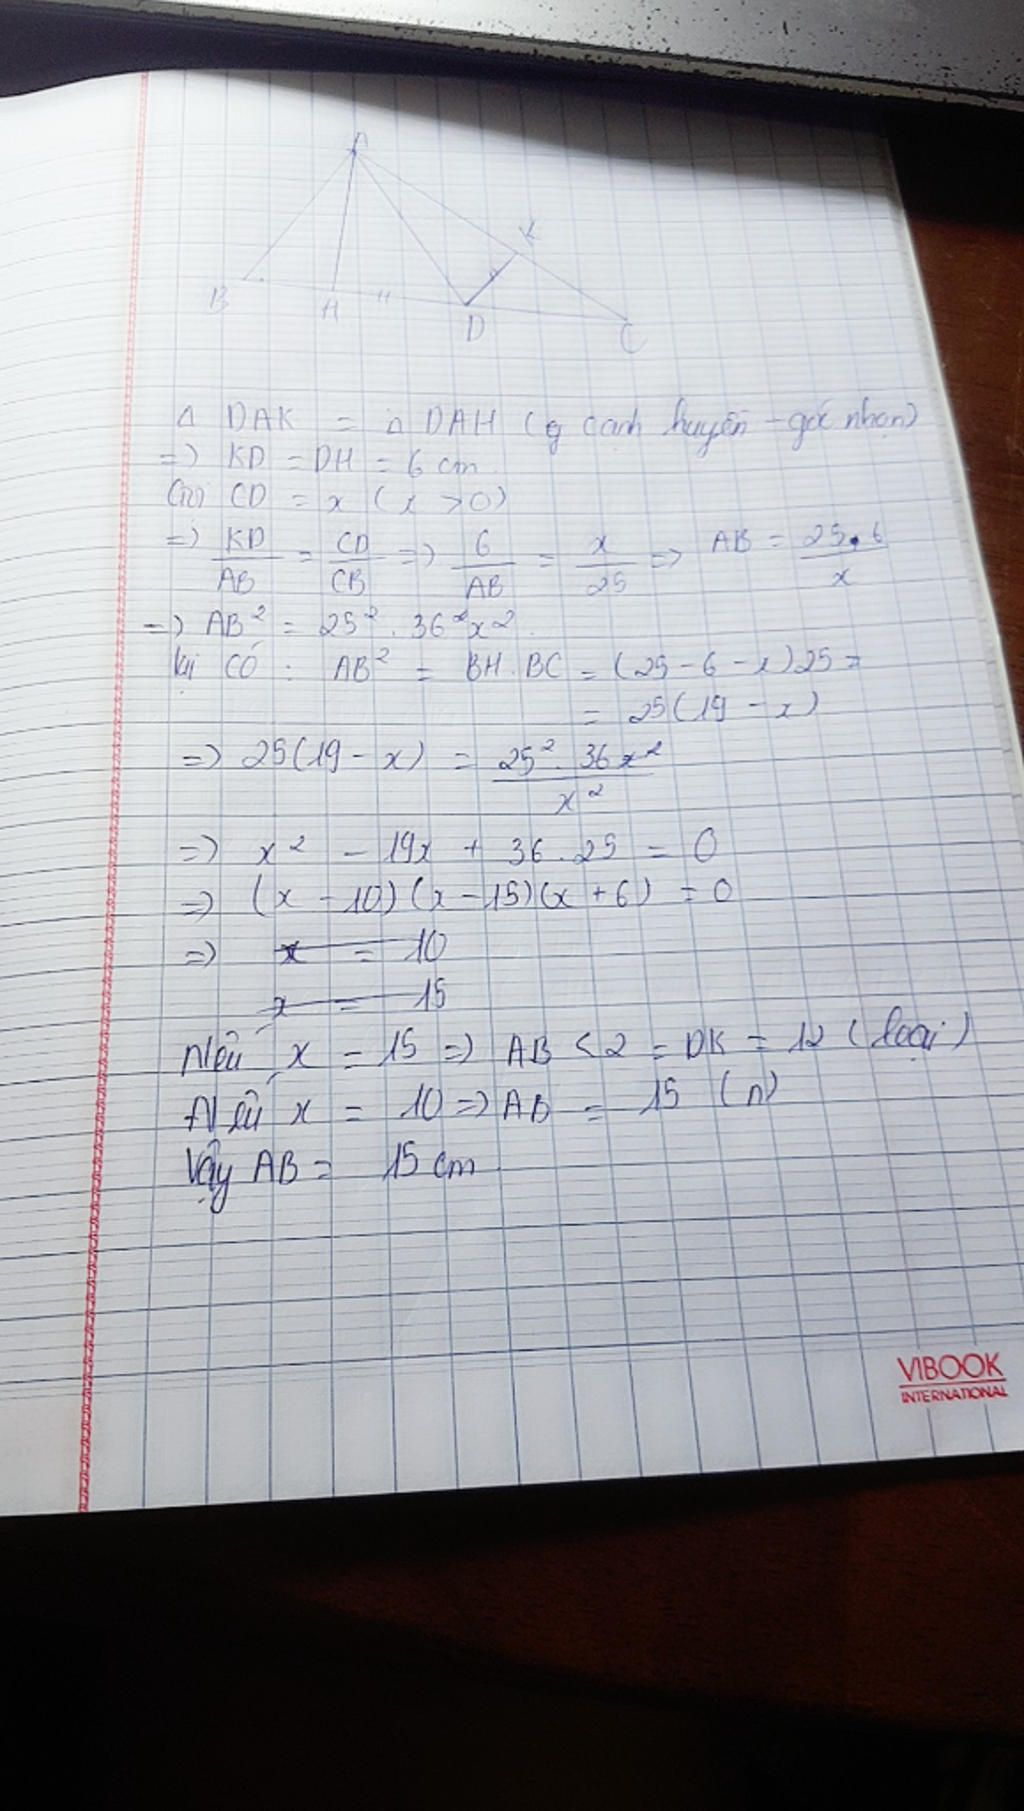 A
K
B
H
D
C
Δ DAK = Δ DAH (g cạnh huyền - góc nhọn)
=> KD = DH = 6 cm
Gọi CD = x (x > 0)
=> KD/AB = CD/CB => 6/AB = x/25 => AB = 25.6/x
=> AB² = 25². 36²x²
lại có : AB² = BH.BC = (25-6-x)25=
= 25(19-x)
=> 25(19-x) = 25². 36x²/x²
=> x² - 19x + 36.25 = 0
=> (x-10)(x-15)(x+6) = 0
=> x = 10
x = 15
Nếu x = 15 => AB < 2 = DK = 12 (loại)
Nếu x = 10 => AB = 15 (n)
Vậy AB = 15 cm
VIBOOK
INTERNATIONAL